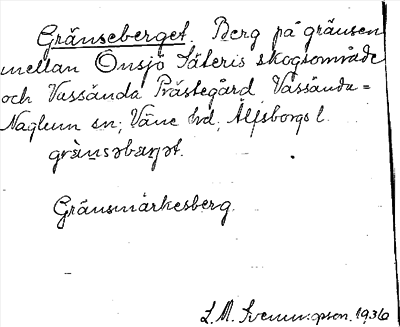 Gränseberget. Berg på gränsen
mellan Onsjö Säteris skogsområde
och Vassända Prästegård Vassända=
Naglum sn; Väne hd, Älfsborgs l.
Gränsmärkesberg.
L. M. Svenungsson. 1936